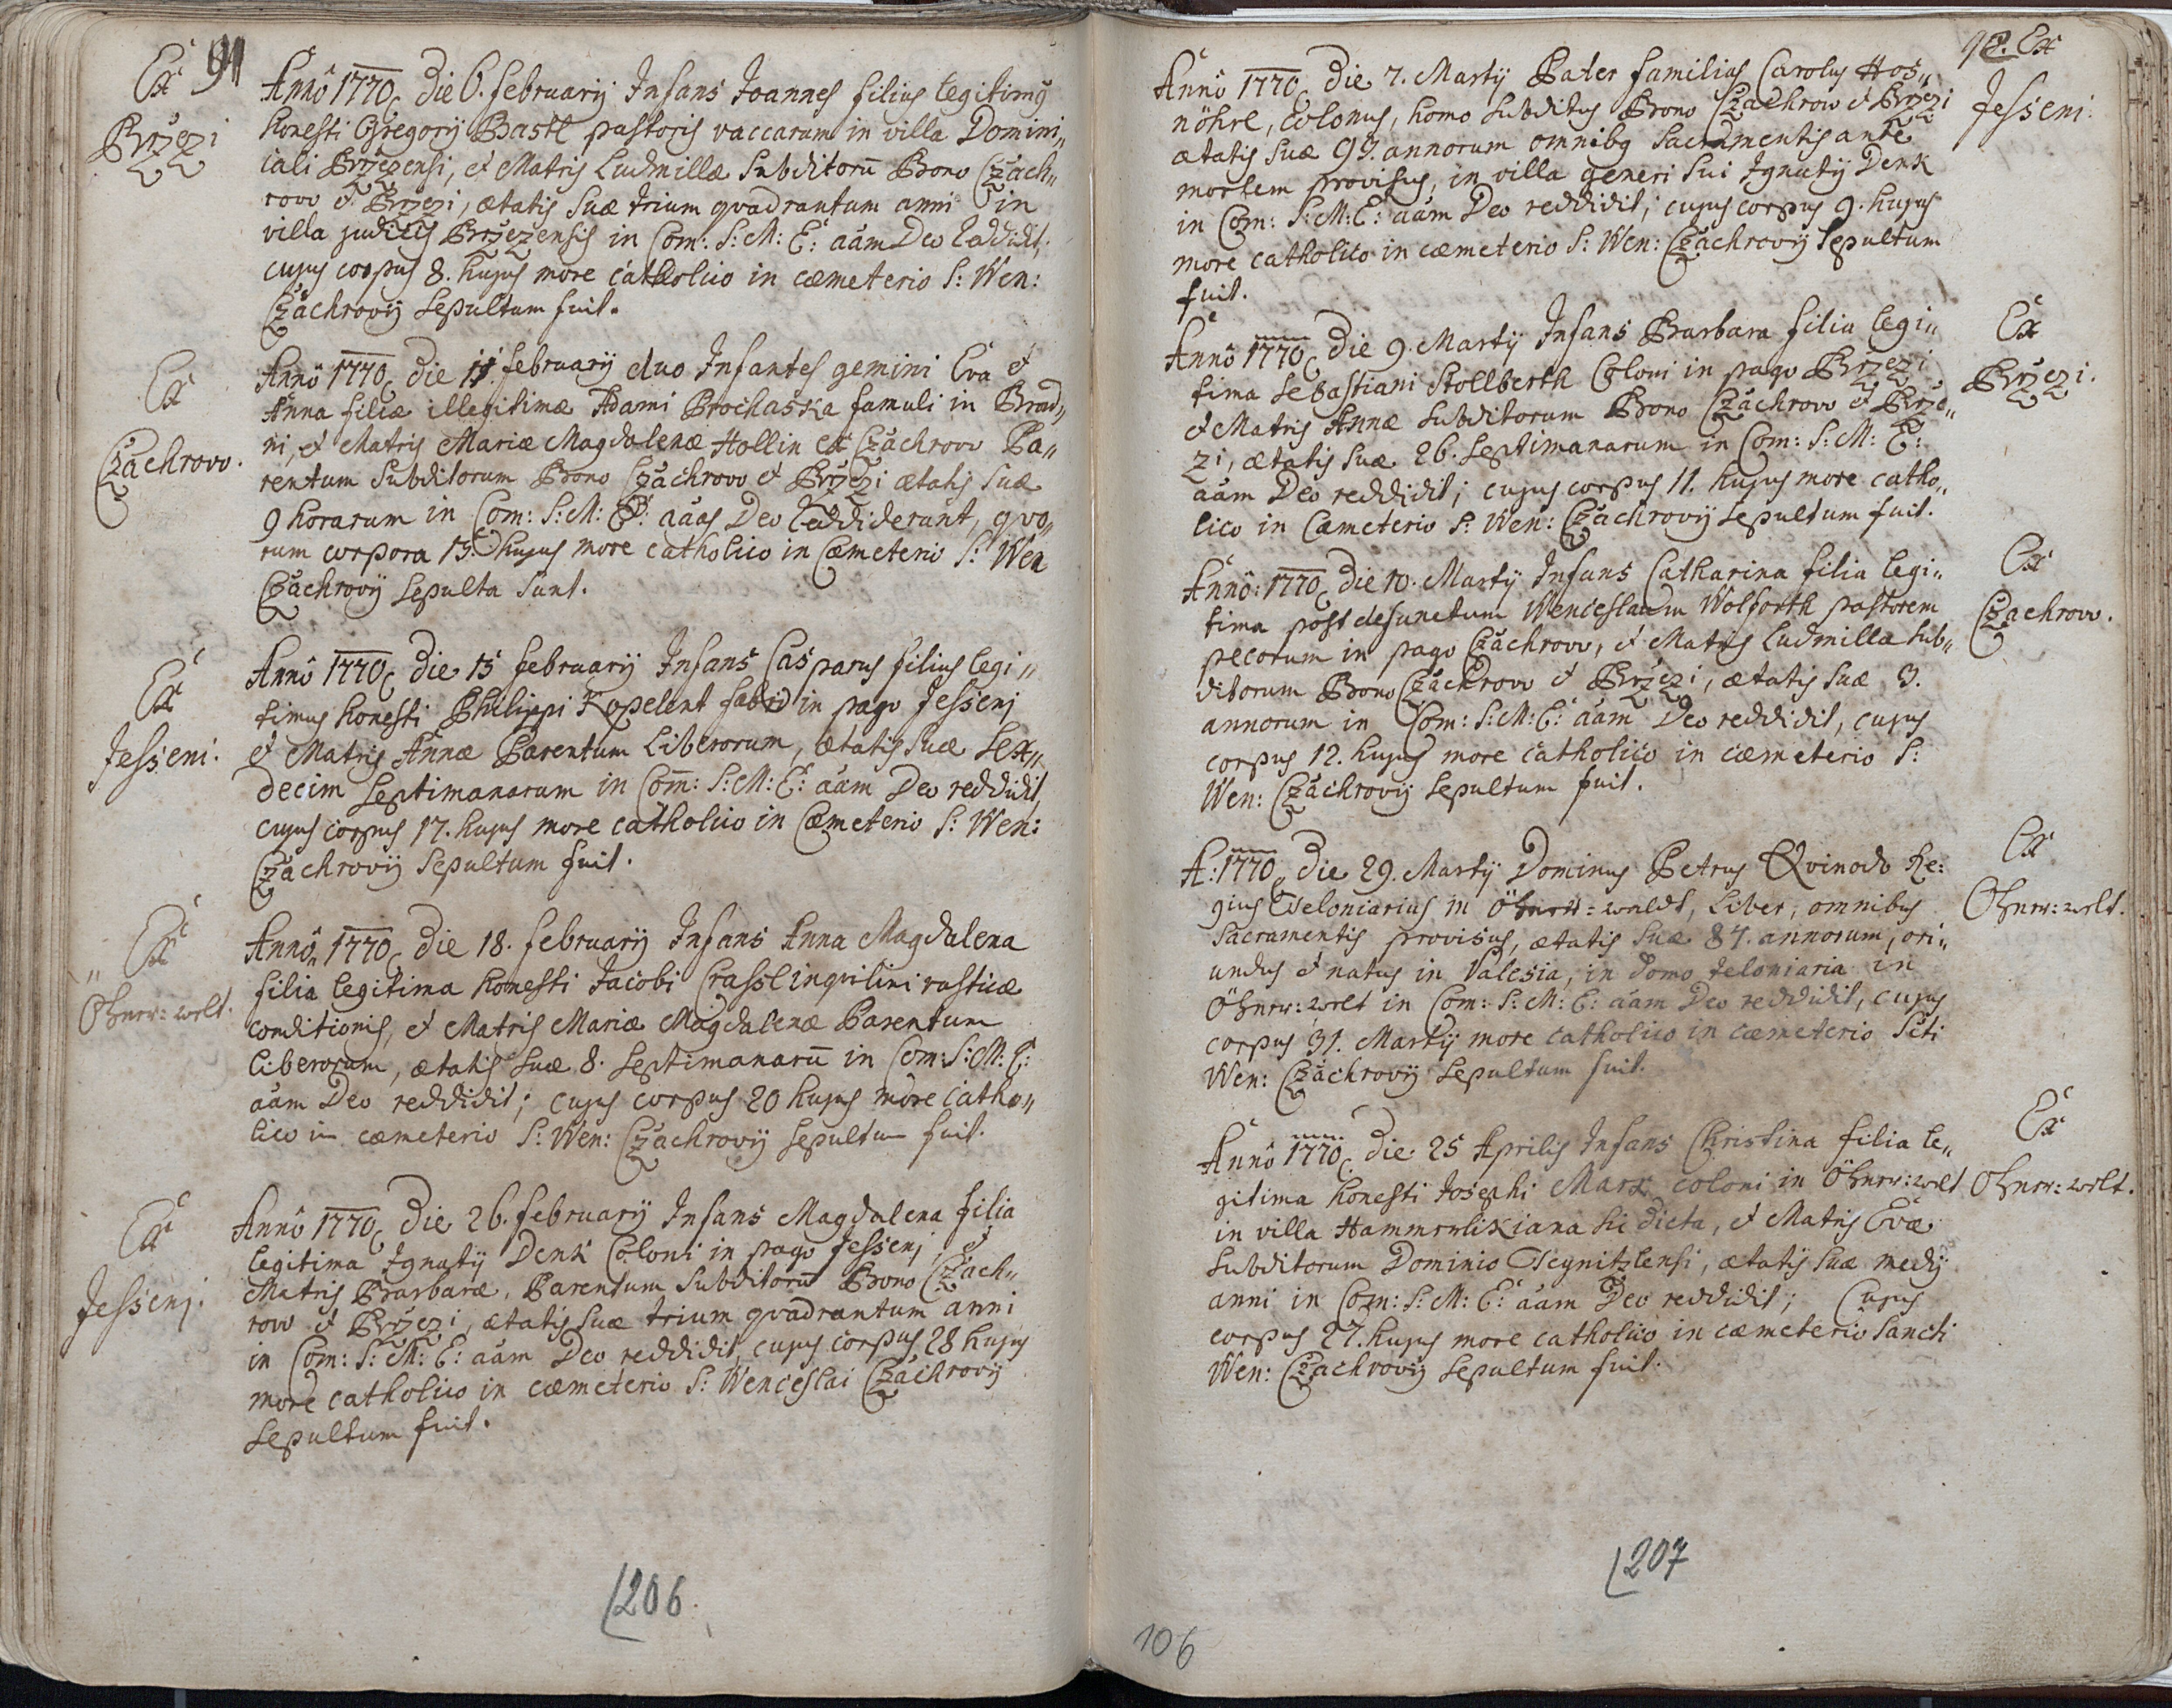 91
Ex
Brzezi
Anno 1770 die 6. februarij Infans Joannes filius legitimg
honesti Gregorij Bastl pastoris vaccarum in villa Domini„
cali Brzezensi, et Matris Ludmillæ Subditorū Bono Czach„
row et Brzezi, ætatis suæ trium qvadrantum anni in
villa judicis Brzezensis in Com: S: M: E: aãm Deo reddidit,
cujus corpus 8. hujus more catholico in cæmeterio S: Wen:
Czachrovij sepultum fuit.
Ex
Czachrow.
Anno 1770 die 11 februarij duo Infantes gemini Eva et
Anna filiæ illegitimæ Adami Prochaska famuli in Brad„
ni, et Matris Mariæ Magdalenæ Hollin ex Czachrow Pa„
rentum Subditorum Bono Czachrow et Brzezi ætatis suæ
9 horarum in Com: S: M: E: aãas Deo reddiderunt, qvo„
rum corpora 13. hujus more catholico in Cæmeterio S: Wen
Czachrovij sepulta sunt.
Ex
Jesseni.
Anno 1770 die 15 februarij Infans Casparus filius legi„
timus honesti Philippi Kopelent fabri in pago Jessenj
et Matris Annæ Parentum Liberorum, ætatis suæ sex„
decim septimanarum in Com: S: M: E: aãm Deo reddidit,
cujus corpus 17. hujus more catholico in Cæmeterio S: Wen:
Czachrovij sepultum fuit.
„ Ex
Öhnw: welt.
Anno 1770 die 18. februarij Infans Anna Magdalena
filia legitima honesti Jacobi Crassl inqvilini rusticæ
conditionis, et Matris Mariæ Magdalenæ Parentum
liberorum, ætatis suæ 8. septimanarū in Com: S: M: E:
aãm Deo reddidit; cujus corpus 20 hujus more catho„
lico in cæmeterio S: Wen: Czachrovij sepultum fuit.
Ex
Jessenj.
Anno 1770 die 26. februarij Infans Magdalena filia
legitima Ignatij Denk Coloni in pago Jessenj et
Matris Barbaræ, Parentum Subditorū Bono Czach„
row et Brzezi, ætatis suæ trium qvadrantum anni
in Com: S: M: E: aãm Deo reddidit, cujus corpus 28 hujus
more catholico in cæmeterio S: Wenceslai Czachrovij
sepultum fuit.
206.
92. Ex
Jesseni.
Anno 1770 die 7. Martij Pater familias Carolus Hos„
nöhrl, colonus, homo subditus Bono Czachrow et Brzezi
ætatis suæ 99. annorum omnibg Sacramentis ante
mortem provisus, in villa generi sui Ignatij Denk
in Com: S: M: E: aãm Deo reddidit; cujus corpus 9. hujus
more catholico in cæmeterio S: Wen: Czachrovij sepultum
fuit.
Ex
Brzezi.
Anno 1770 die 9. Martij Infans Barbara filia legi„
tima Sebastiani Stollberth Coloni in pago Brzezi
et Matris Annæ subditorum Bono Czachrow et Brze„
zi, ætatis suæ 26. septimanarum in Com: S: M: E:
aãm Deo reddidit; cujus corpus 11. hujus more catho„
lico in Cæmeterio S: Wen: Czachrovij sepultum fuit.
Ex
Czachrow.
Anno: 1770 die 10. Martij Infans Catharina filia legi„
tima post defunctum Wenceslaum Wolforth pastorem
pecorum in pago Czachrow, et Matris Ludmilla sub„
ditorum Bono Czachrow et Brzezi, ætatis suæ 3.
annorum in Com: S: M: E: aãm Deo reddidit, cujus
corpus 12. hujus more catholico in cæmeterio S:
Wen: Czachrovij sepultum fuit.
Ex
Öhnrr: welt.
A: 1770 die 29. Martij Dominus Petrus Qvinodo Re:
gius Teloniarius in Öhnrr: waldt, Liber, omnibus
Sacramentis provisus, ætatis suæ 84. annorum, ori„
undus et natus in Valesia, in domo teloniaria in
Öhnrr: welt in Com: S: M: E: aãm Deo reddidit, cujus
corpus 31. Martij more catholico in cæmeterio Scti
Wen: Czachrovij sepultum fuit.
Ex
Öhnrr: welt.
Anno 1770 die 25 Aprilis Infans Christina filia le„
gitima honesti Josephi Marx coloni in Öhnrr: welt
in villa Hammerlikiana sic dicta, et Matris Evæ
subditorum Dominio Teynitzlensi, ætatis suæ medij
anni in Com: S: M: E: aãm Deo reddidit; Cujus
corpus 27. hujus more catholico in cæmeterio Sancti
Wen: Czachrovij sepultum fuit.
207
106